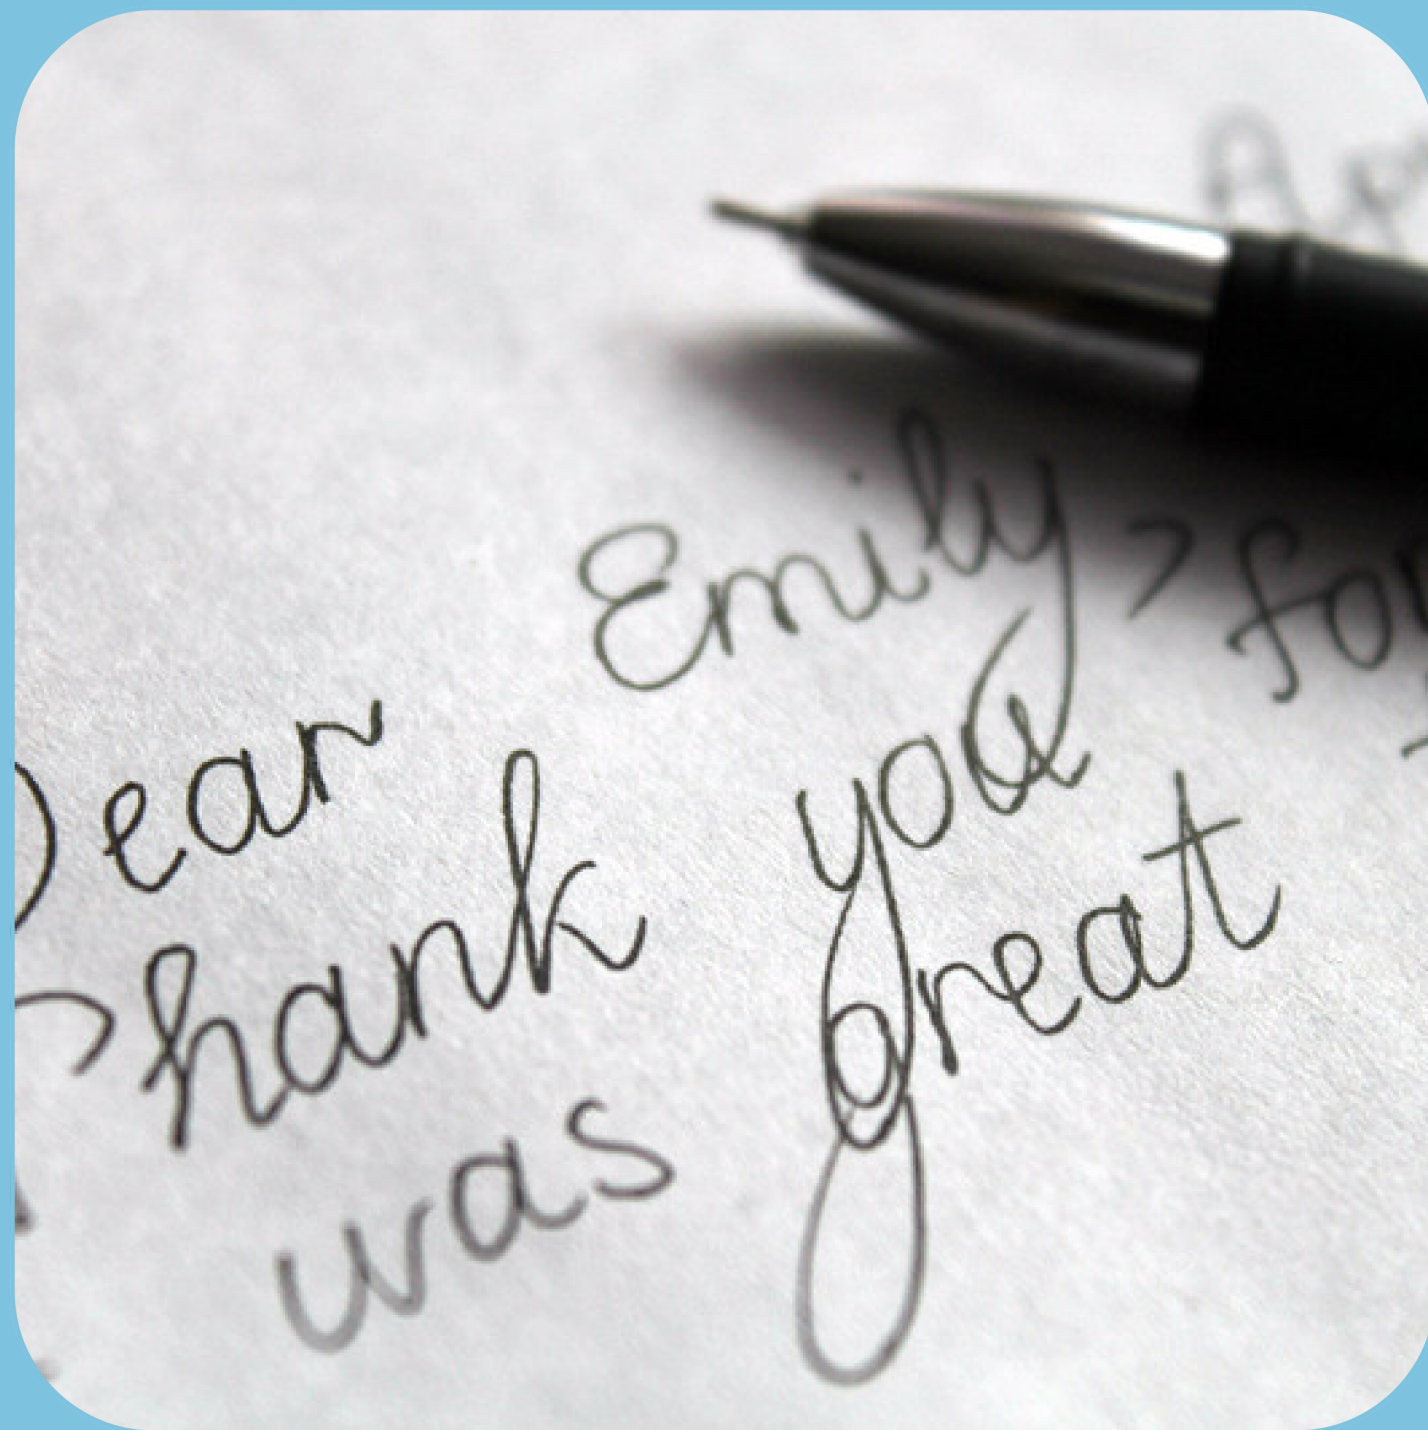 Dear Emily,
Thank you for
was great